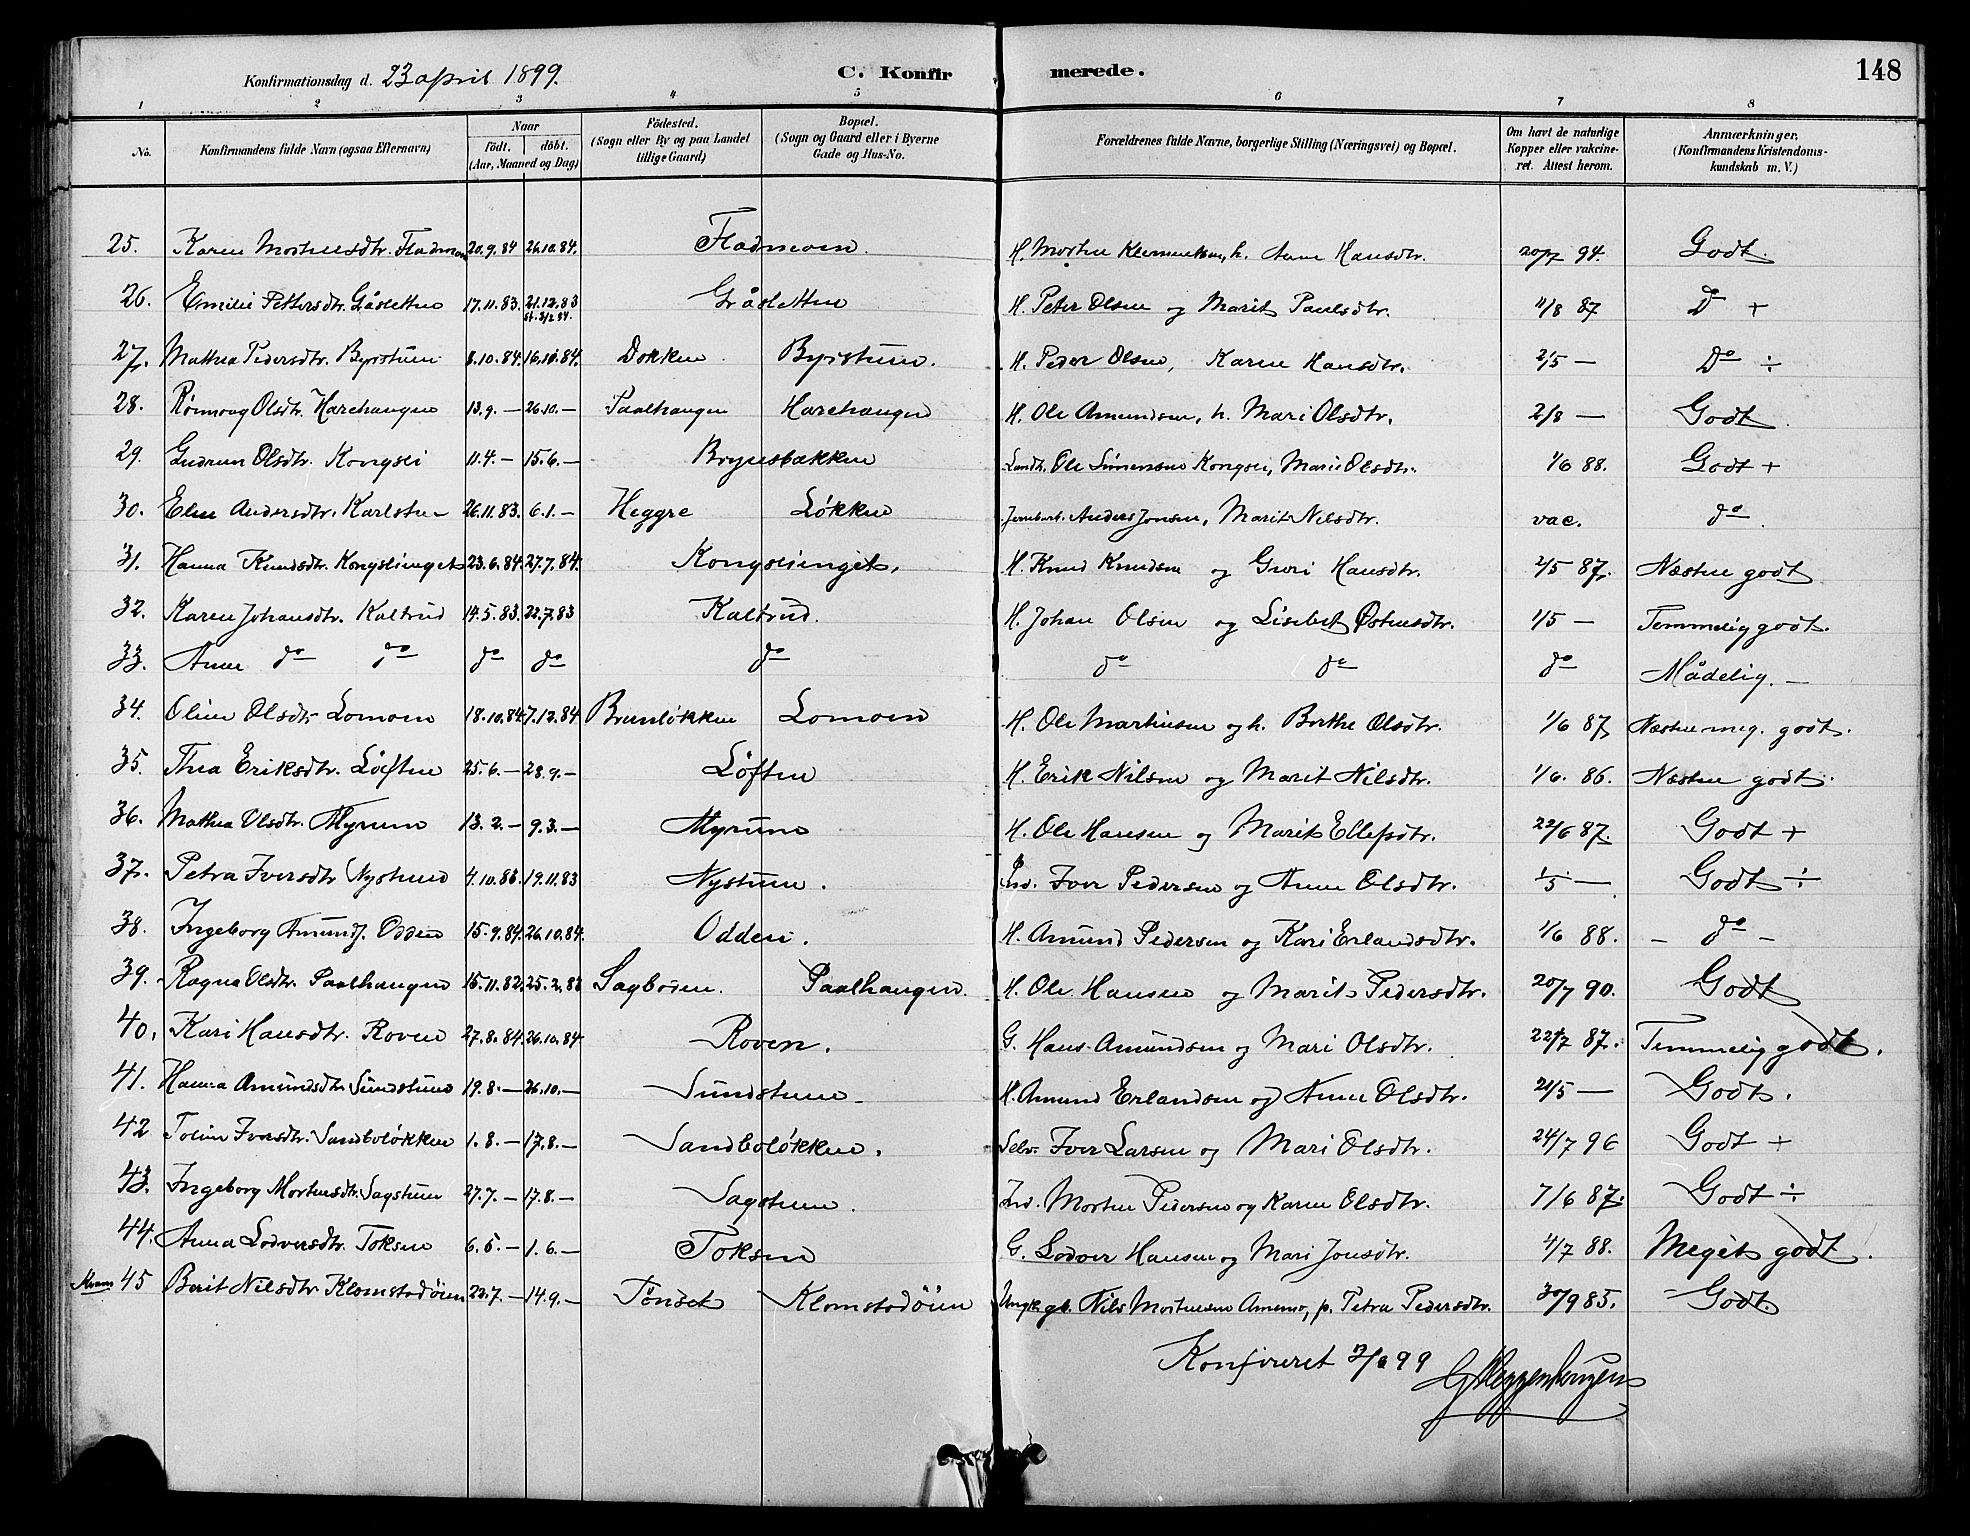 Konfirmationsdag d. 23 april 1899.
C. Konfir merede.
148
1 2 3 4 5 6 7 8
No. Konfirmandens fulde Navn (ogsaa Efternavn) Naar födt. döbt. (Aar, Maaned og Dag) Födested. (Sogn eller By og paa Landet tillige Gaard) Bopæl. (Sogn og Gaard eller i Byerne Gade og Hus-No. Forældrenes fulde Navne, borgerlige Stilling (Næringsvei) og Bopæl. Om havt de naturlige Kopper eller vakcineret. Attest herom. Anmærkninger. (Konfirmandens Kristendomskundskab m. V.)
25. Karen Mortensdtr. Fladmoen 20.9.84 26.10.84. Fladmoen. H. Morten Klemmetsen, h. Anne Hansdtr. 20/7 94. Godt.
26. Emilie Pettersdtr. Gåsletten 17.11.83. 21.12.83 st. 3/2 84. Gråsletten H. Peter Olsen og Marit Paulsdtr. 4/8 87 Do +
27. Mathea Pedersdtr. Byrstuen 8.10.84 16.10.84. Dokken Byrstuen. H. Peder Olsen, Karen Hansdtr. 2/5 — Do ÷
28. Rønnoug Olsdtr. Harehaugen 13.9. — 26.10. — Paalhaugen Harehaugen H. Ole Amundsen, h. Mari Olsdtr. 2/8 — Godt.
29. Gudrun Olsdtr. Kongsli 11.4. — 15.6. — Brynsbakken Landh. Ole Simensen Kongsli, Mari Olsdtr. 1/6 88. Godt +
30. Elen Andersdtr. Karlsten 26.11.83. 6.1. — Heggre Løkken Jernbarb. Anders Jonsen, Marit Nilsdtr. vac. do.
31. Hanna Knudsdtr. Kongslienget 23.6.84. 27.7.84. Kongslienget. H. Knud Knudsen og Guri Hansdtr. 2/5 87. Næsten godt
32. Karen Johansdtr. Kaltrud 14.5.83. 22.7.83 Kaltrud. H. Johan Olsen og Lisebet Østensdtr. 1/5 — Temmelig godt.
33. Anne do do do do do do do do Mådelig. —
34. Oline Olsdtr Lomoen 18.10.84 7.12.84 Brunløkken Lomoen H. Ole Martinsen og h. Berthe Olsdtr. 1/6 87 Næsten meg. godt.
35. Thea Eriksdtr. Løften 25.6. — 28.9. — Løften H. Erik Nilsen og Marit Nilsdtr. 1/6. 86. Næsten godt.
36. Mathea Olsdtr. Myrum 13.2. — 9.3. — Myrum H. Ole Hansen og Marit Ellefsdtr. 22/6 87. Godt +
37. Petra Iversdtr Nystuen 4.10.83. 19.11.83 Nystuen. Ind. Iver Pedersen og Anne Olsdtr. 1/5 — Godt ÷
38. Ingeborg Amundsd. Odden 15.9.84. 26.10.84. Odden. H. Amund Pedersen og Kari Erlandsdtr. 1/6 88. — do —
39. Ragna Olsdtr. Paalhaugen 15.11.82. 25.2.83 Sagboden. Paalhaugen. H. Ole Hansen og Marit Pedersdtr. 20/7 90. Godt
40. Kari Hansdtr. Roven 27.8.84. 26.10.84. Roven. G. Hans Amundsen og Mari Olsdtr. 22/7 87. Temmelig godt.
41. Hanna Amundsdtr. Sundstuen 19.8. — 26.10. — Sundstuen H. Amund Erlandsen og Anne Olsdtr. 21/5 — Godt.
42 Toline Iversdtr. Sandboløkken 1.8. — 17.8. — Sandboløkken. Selv. Iver Larsen og Mari Olsdtr. 24/7 96 Godt +
43. Ingeborg Mortensdtr. Sagstuen 27.7. — 17.8. — Sagstuen. Ind. Morten Pedersen og Karen Olsdtr. 7/6 87. Godt ÷
44. Anna Lodversdtr. Toksen 6.5. — 1.6. — Toksen G. Lodver Hansen og Mari Jonsdtr. 4/7 88. Meget godt.
Kvam 45 Berit Nilsdtr Klomstadøien 22.7. — 14.9. — Tønset Klomstadøien Ungk. gb. Nils Mortensen Amemo, p. Petra Pedersdtr. 30/9 85. Godt.
Konfireret 7/8 99